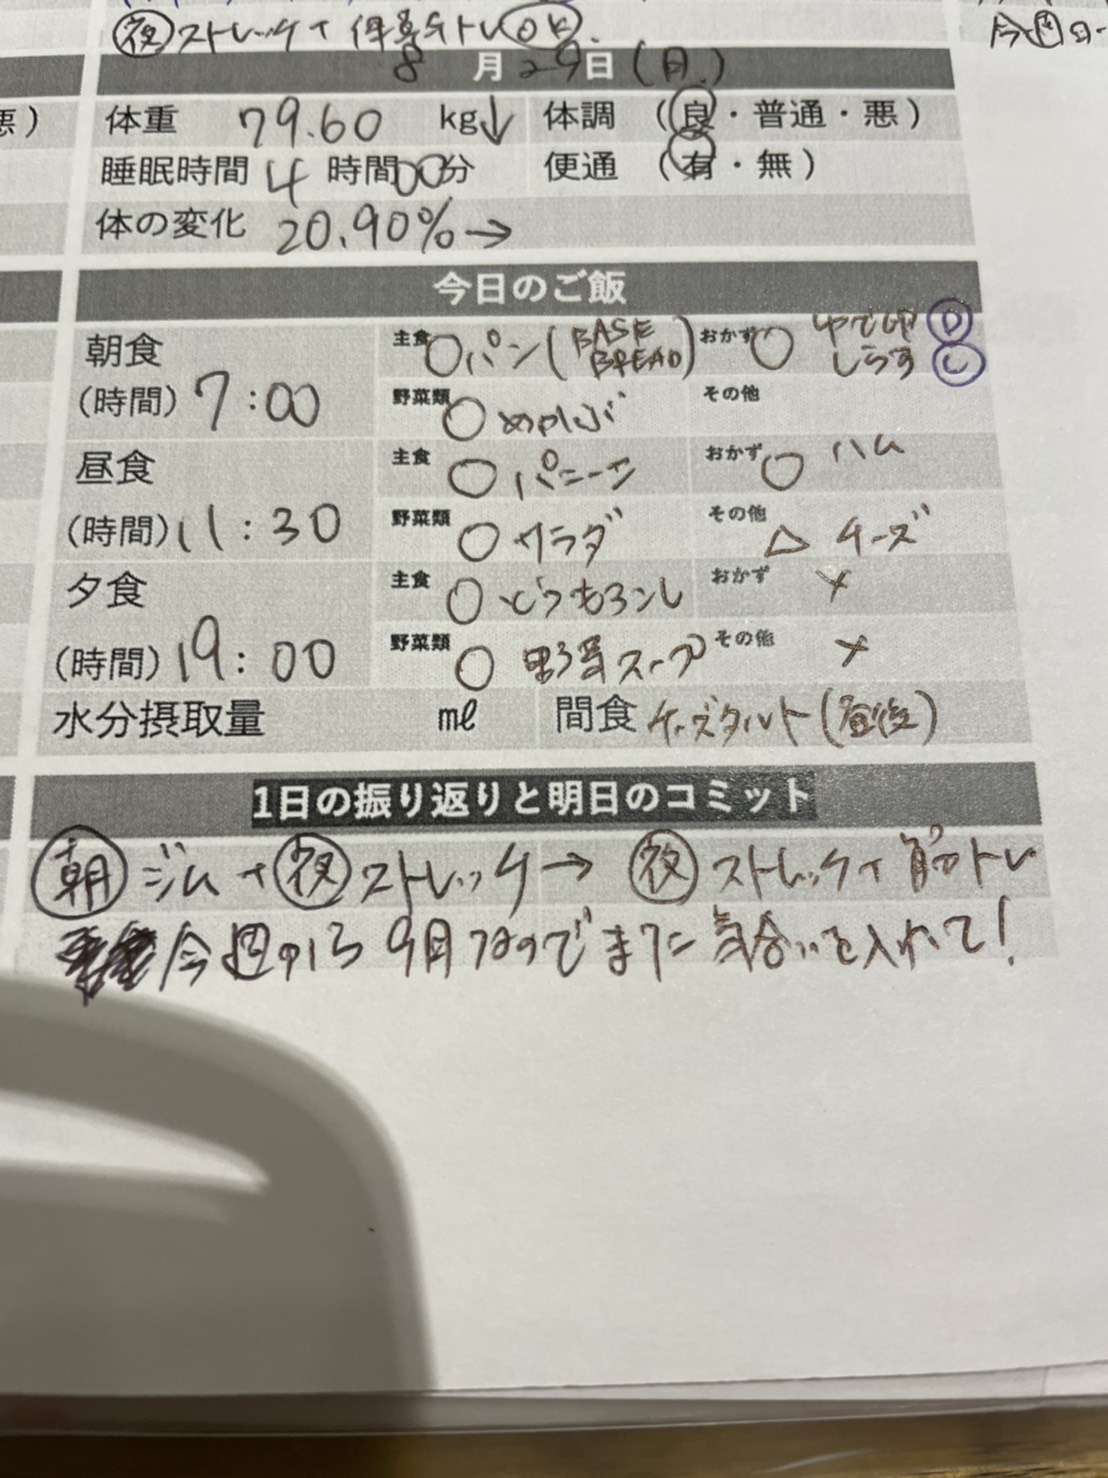 夜 ストレッチ+体幹トレOK.
今週
8月29日(月.)
悪)
体重 79.60 kg↓ 体調 (良・普通・悪)
睡眠時間 4時間00分 便通 (有・無)
体の変化 20.90%→
今日のご飯
朝食 主食 ○パン(BASE BREAD) おかず ○ ゆで卵 D しらす C
(時間) 7:00 野菜類 ○ めかぶ その他
昼食 主食 ○ パニーニ おかず ○ ハム
(時間) 11:30 野菜類 ○ サラダ その他 △ チーズ
夕食 主食 ○ とうもろこし おかず ×
(時間) 19:00 野菜類 ○ 野菜スープ その他 ×
水分摂取量 ㎖ 間食 チーズタルト(昼後)
1日の振り返りと明日のコミット
朝 ジム+夜 ストレッチ→ 夜 ストレッチ+筋トレ
今週から9月なのでまた気合いを入れて!